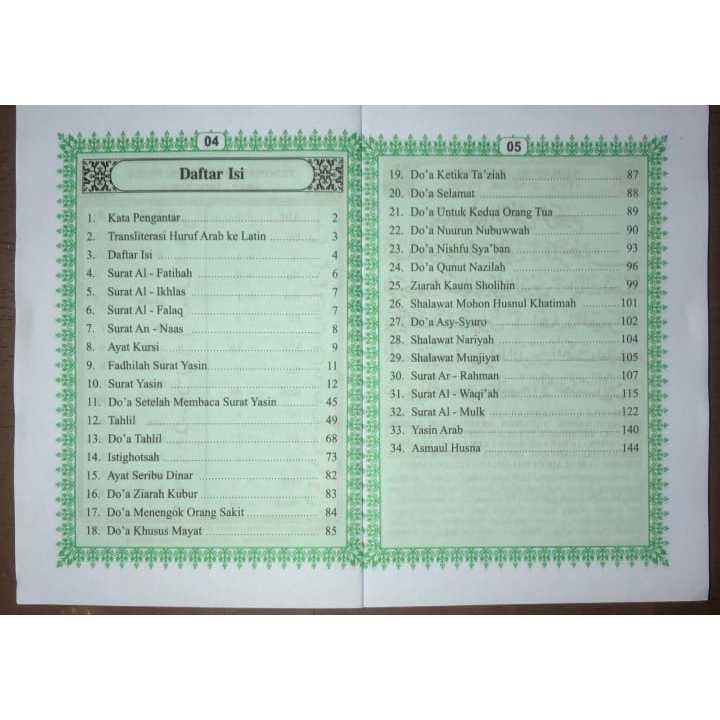 04
Daftar Isi
1. Kata Pengantar 2
2. Transliterasi Huruf Arab ke Latin 3
3. Daftar Isi 4
4. Surat Al - Fatihah 6
5. Surat Al - Ikhlas 7
6. Surat Al - Falaq 7
7. Surat An - Naas 8
8. Ayat Kursi 9
9. Fadhilah Surat Yasin 11
10. Surat Yasin 12
11. Do'a Setelah Membaca Surat Yasin 45
12. Tahlil 49
13. Do'a Tahlil 68
14. Istighotsah 73
15. Ayat Seribu Dinar 82
16. Do'a Ziarah Kubur 83
17. Do'a Menengok Orang Sakit 84
18. Do'a Khusus Mayat 85
05
19. Do'a Ketika Ta'ziah 87
20. Do'a Selamat 88
21. Do'a Untuk Kedua Orang Tua 89
22. Do'a Nuurun Nubuwwah 90
23. Do'a Nishfu Sya'ban 93
24. Do'a Qunut Nazilah 96
25. Ziarah Kaum Sholihin 99
26. Shalawat Mohon Husnul Khatimah 101
27. Do'a Asy-Syuro 102
28. Shalawat Nariyah 104
29. Shalawat Munjiyat 105
30. Surat Ar - Rahman 107
31. Surat Al - Waqi'ah 115
32. Surat Al - Mulk 122
33. Yasin Arab 140
34. Asmaul Husna 144